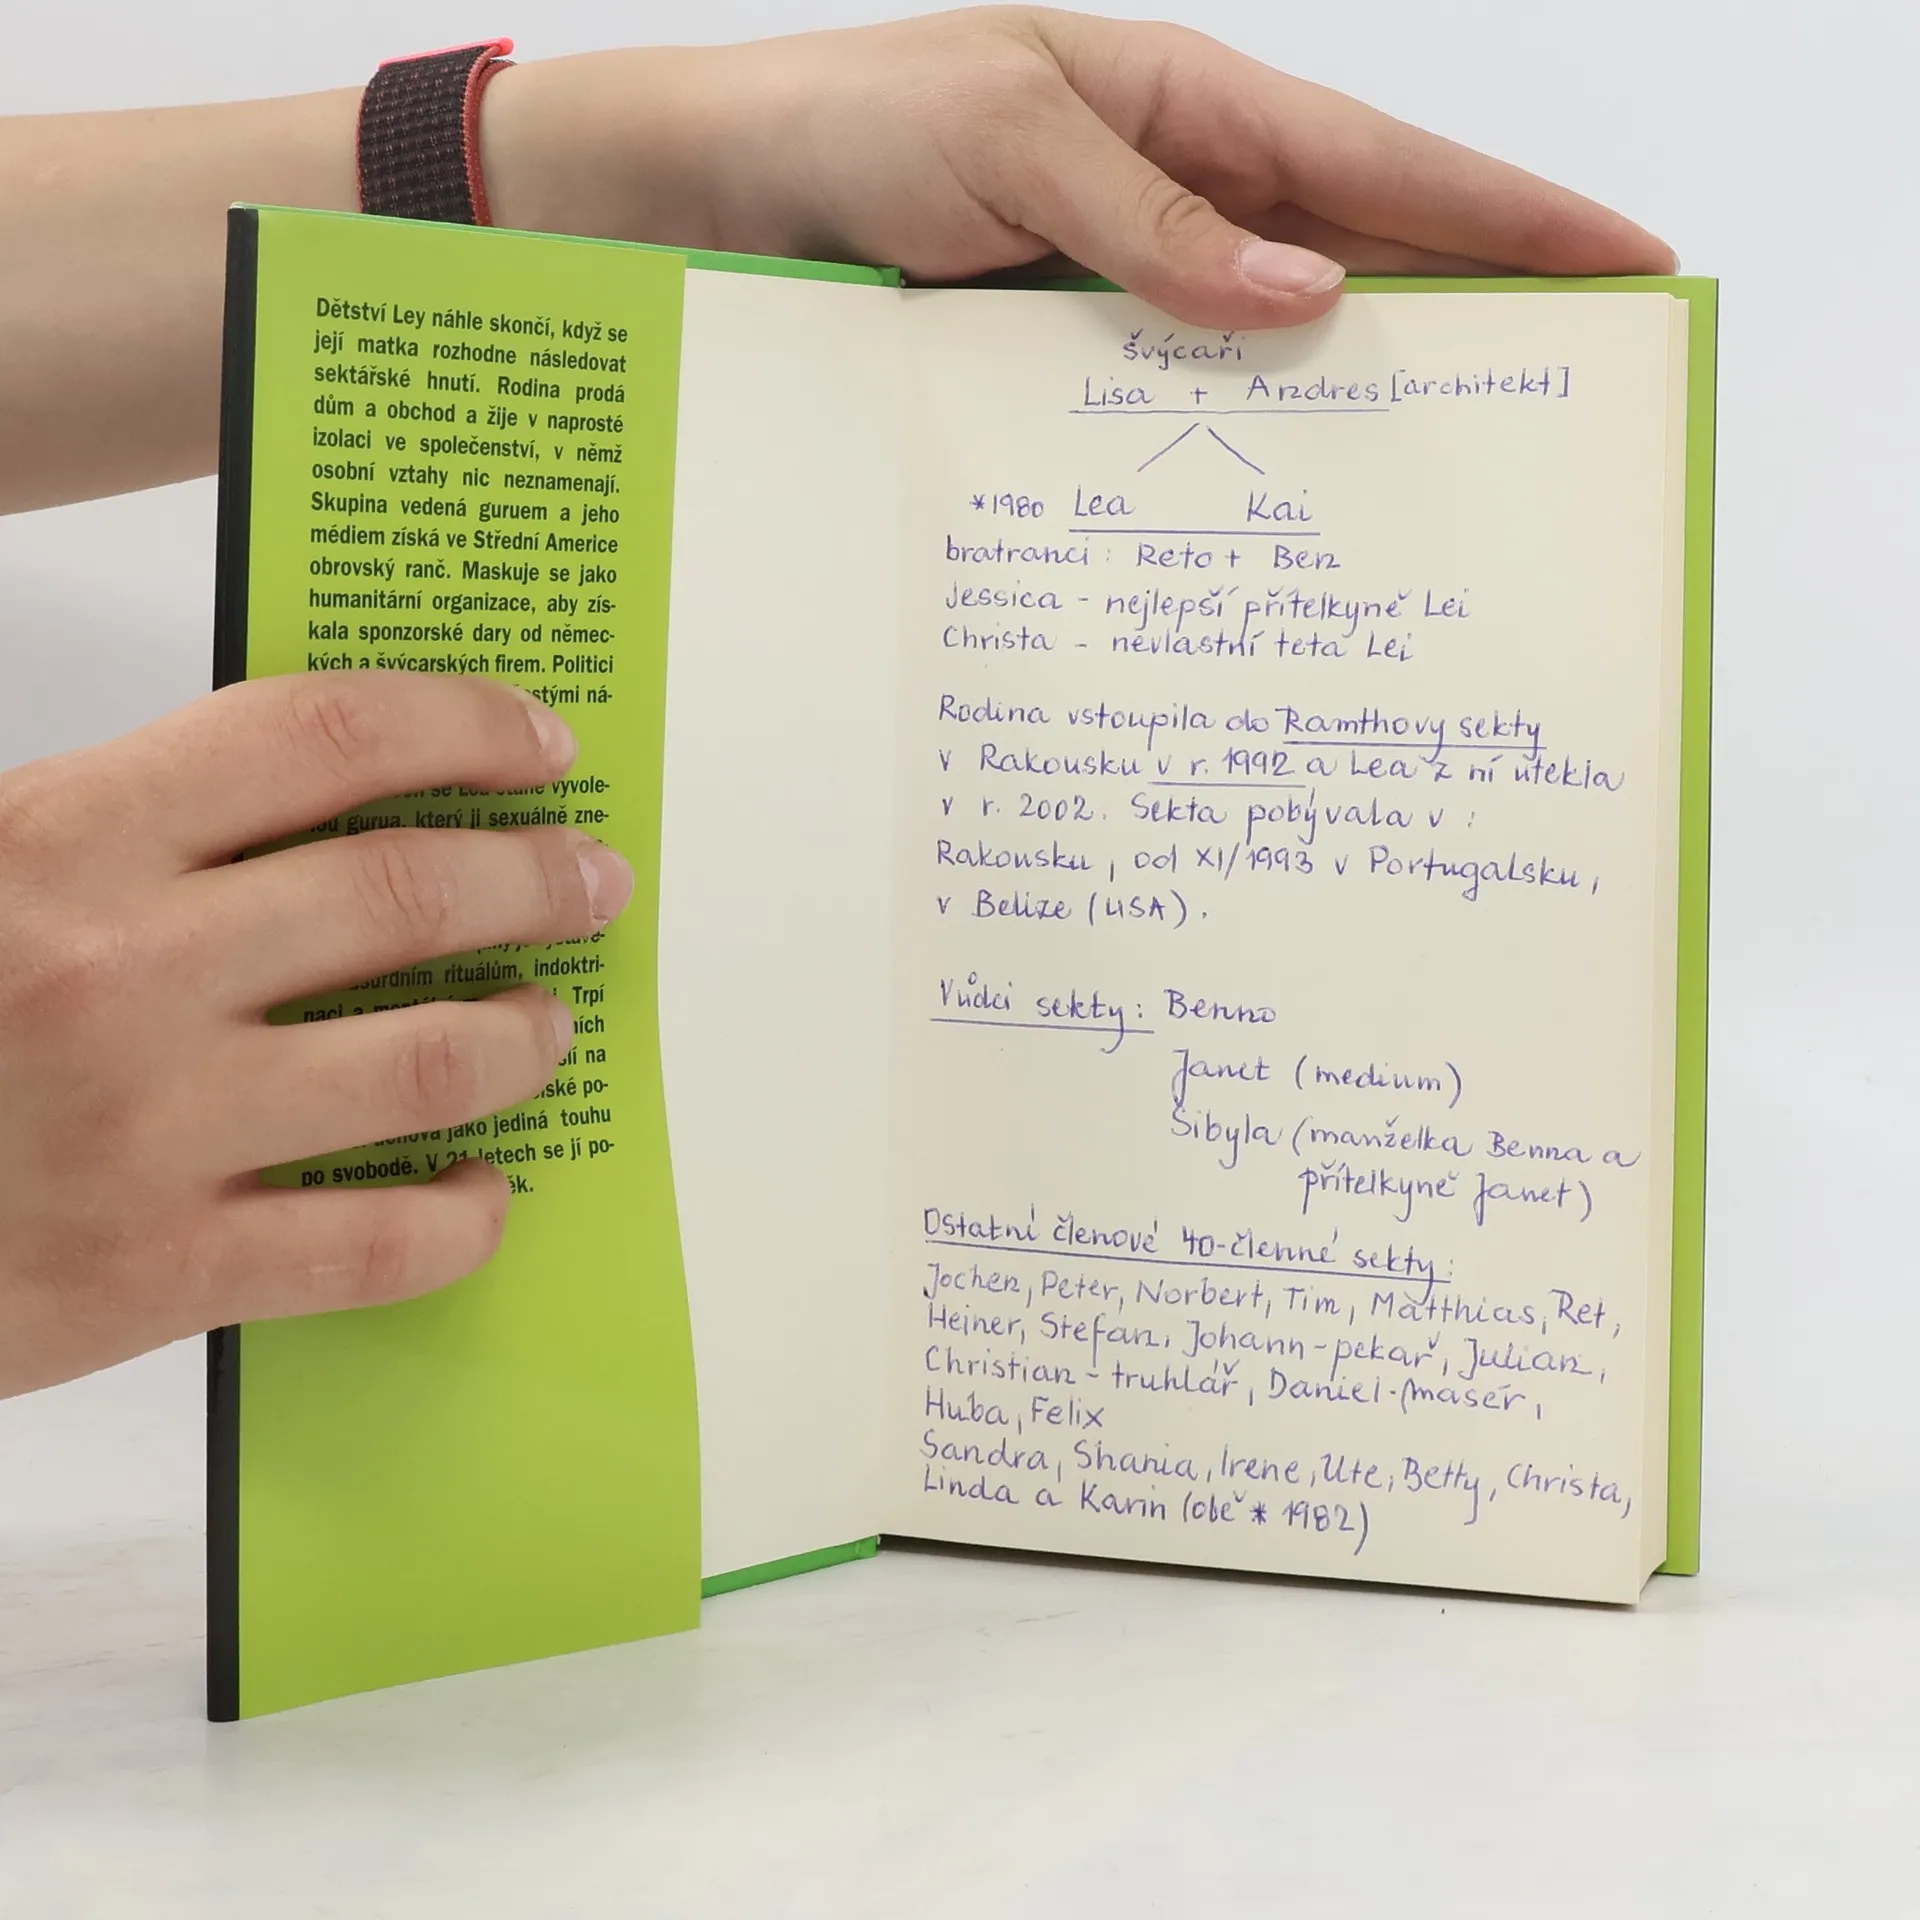 Dětství Ley náhle skončí, když se
její matka rozhodne následovat
sektářské hnutí. Rodina prodá
dům a obchod a žije v naprosté
izolaci ve společenství, v němž
osobní vztahy nic neznamenají.
Skupina vedená guruem a jeho
médiem získá ve Střední Americe
obrovský ranč. Maskuje se jako
humanitární organizace, aby zís-
kala sponzorské dary od němec-
kých a švýcarských firem. Politici
stými ná-
se stane vyvole-
gurua, který ji sexuálně zne-
rituálům, indoktri-
naci a Trpí
na
po-
jako jediná touhu
po svobodě. V 21 letech se jí po-
švýcaři
Lisa + Andres [architekt]
*1980 Lea Kai
bratranci : Reto + Ben
Jessica - nejlepší přítelkyně Lei
Christa - nevlastní teta Lei
Rodina vstoupila do Ramthovy sekty
v Rakousku v r. 1992 a Lea z ní utekla
v r. 2002. Sekta pobývala v :
Rakousku, od XI/1993 v Portugalsku,
v Belize (USA).
Vůdci sekty: Benno
Janet (medium)
Sibyla (manželka Benna a
přítelkyně Janet)
Ostatní členové 40-členné sekty:
Jochen, Peter, Norbert, Tim, Matthias, Ret,
Heiner, Stefan, Johann-pekař, Julian,
Christian - truhlář, Daniel-masér,
Huba, Felix
Sandra, Shania, Irene, Ute, Betty, Christa,
Linda a Karin (obě * 1982)